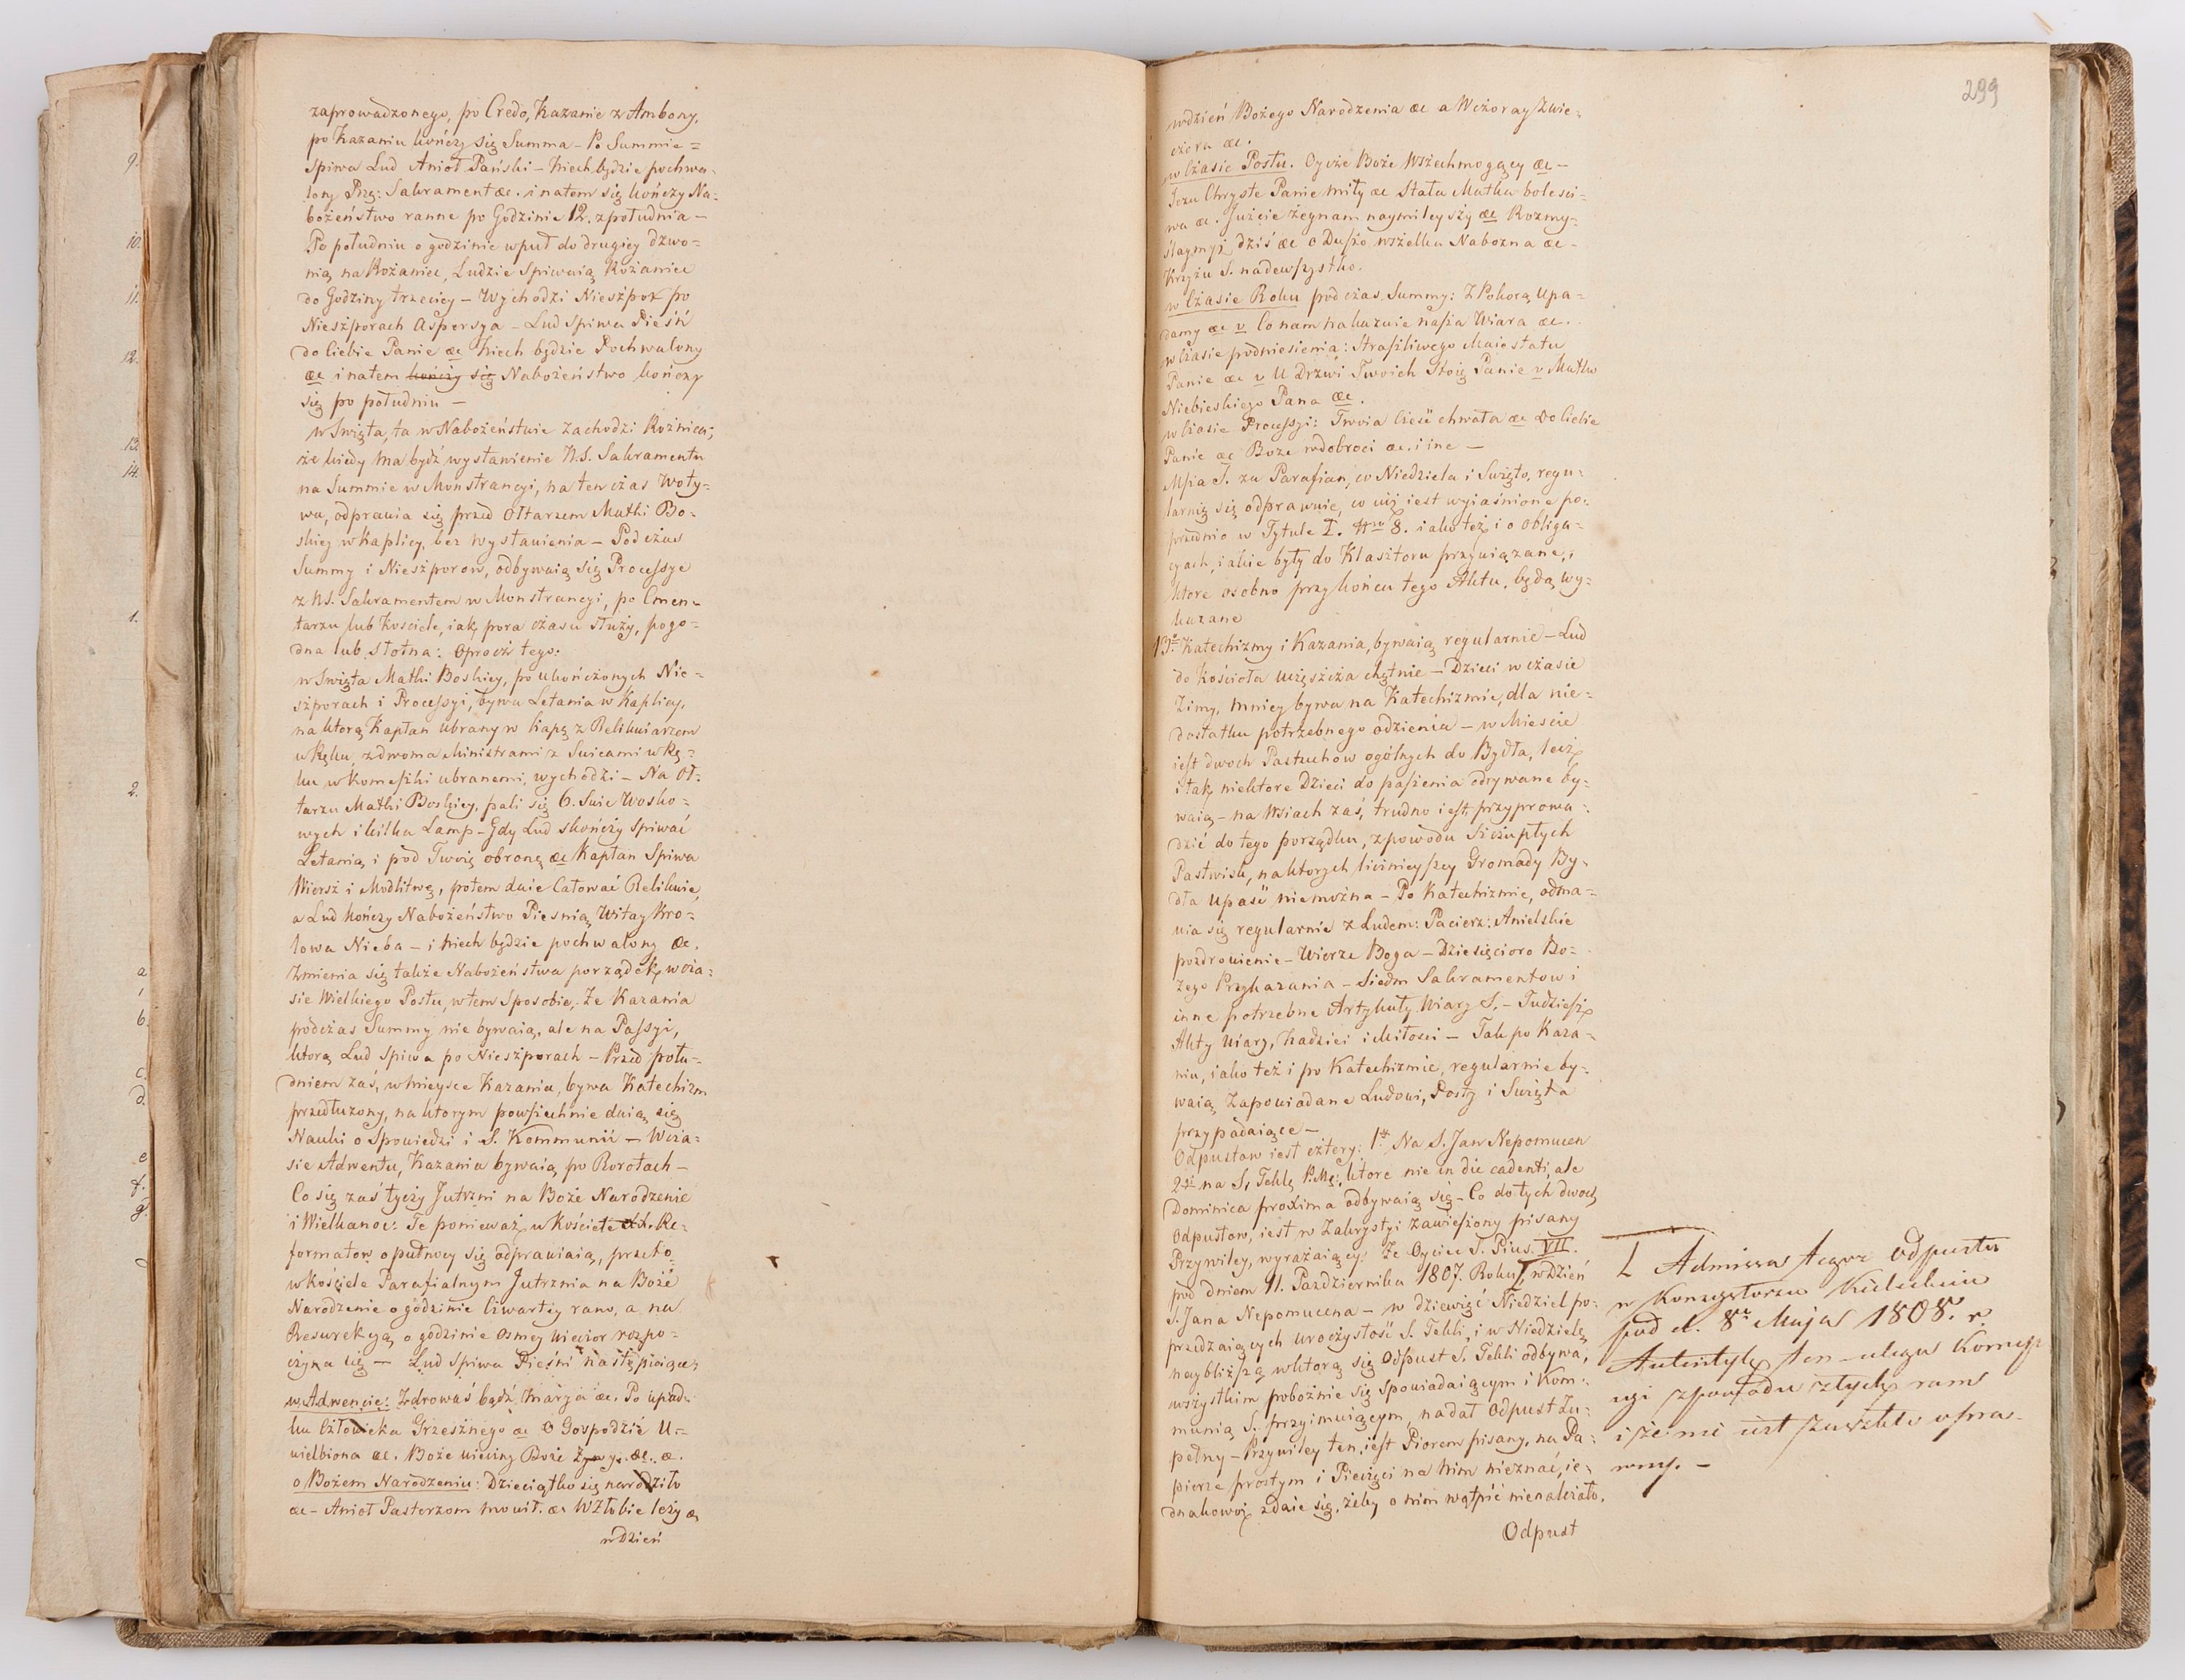 zaprowadzonego, po Credo, Kazanie z Ambony,
po Kazaniu kończy się Summa – Po Summie =
Spiwa Lud Anioł Pański – Niech będzie pochwa-
lony Prz: Sakrament &c. i natem się kończy Na=
bożeństwo ranne po Godzinie 12. z południa –
Po południu o godzinie wpuł do drugiey dzwo=
nią na Rożaniec, Ludzie Spiwaią Rożaniec
do Godziny trzeciey – Wychodzi Nieszpor po
Nieszporach Aspersya – Lud Spiwa Pieśń
do Ciebie Panie &c Niech będzie Pochwalony
&c i natem kończy się Nabożeństwo kończy
się po południu –
w Swięta, ta w Nabożeństwie Zachodzi Rożnica;
że kiedy ma bydź wystawienie N.S. Sakramentu
na Summie w Monstrancyi, na ten czas Woty=
wa, odprawia się przed Ołtarzem Matki Bo=
skiey w Kaplicy, bez wystawienia – Podczas
Summy i Nieszporow, odbywaią się Processye
z N.S. Sakramentem w Monstrancyi, po Cmen=
tarzu lub Kosciele, iak pora czasu służy, pogo=
dna lub słotna: Oprocz tego:
w Swięta Matki Boskiey, po ukończonych Nie=
szporach i Processyi, bywa Letania w Kaplicy,
na ktorą Kapłan ubrany w kapę z Relikwiarzem
w Ręku, z dwoma Ministrami z Swicami w Rę=
ku w Komeszki ubranemi, wychodzi – Na Oł=
tarzu Matki Boskiey, pali się 6. Swic Wosko=
wych i kilka Lamp – Gdy Lud skończy Spiwać
Letanią i pod Twoię obronę &c Kapłan Spiwa
Wiersz i Modlitwę, potem daie Całować Relikwie,
a Lud kończy Nabożeństwo Piesnią Witay Kro=
lowa Nieba – i Niech będzie pochwalony &c.
Zmienia się także Nabożeństwa porządek, w cza=
sie Wielkiego Postu, w tem Sposobie, Że Kazania
podczas Summy nie bywaią, ale na Passyi,
ktorą Lud Spiwa po Nieszporach – Przed połu=
dniem zaś, w mieysce Kazania, bywa Katechizm
przedłużony, na ktorym powszechnie daią się
Nauki o Spowiedzi i S. Kommunii – W cza=
sie Adwentu, Kazania bywaią po Rorotach –
Co się zaś tyczy Jutrzni na Boże Narodzenie
i Wielkanoc: Te ponieważ w Kościele XX. Re=
formatow o pułnocy się odprawiaią, przeto
w kościele Parafialnym Jutrznia na Boże
Narodzenie o godzinie Czwartey rano, a na
Resurekcyą o godzinie Osmey wieczor rozpo=
czyna się – Lud Spiwa Pieśni następuiące;
w Adwencie: Zdrowaś bądź Marya &c. Po upad=
ku Człowieka Grzesznego &c O Gospodzie U=
wielbiona &c. Boże wieczny Boże Żywy. &c. &c.
o Bożem Narodzeniu: Dzieciątko się narodziło
&c – Anioł Pasterzom mowił. &c W Żłobie leży &c
w Dzień
299
w dzień Bożego Narodzenia &c a Wczoray z wie=
czora &c.
w Czasie Postu. Oycze Boże Wszechmogący &c –
Jezu Chryste Panie miły &c Stała Matka bolesci=
wa &c. Jużcie żegnam naymilszy &c Rozmy=
ślaymyż dziś &c o Duszo wszelka Nabozna &c –
Krzyżu S. nadewszystko.
w Czasie Roku podczas Summy: Z Pokorą Upa=
damy &c v Co nam nakazuie nasza Wiara &c.
w Czasie podniesienia: Straszliwego Maiestatu
Panie &c v U Drzwi Twoich Stoię Panie v Matko
Niebieskiego Pana &c.
w Czasie Processyi: Twoia Cześć chwała &c Do Ciebie
Panie &c Boze w dobroci &c. i ine –
Msza S. za Parafian, co Niedziela i Swięto, regu=
larnie się odprawuie, co iuż iest wyiaśnione po=
przednio w Tytule I. Nro 8. iako też i o obliga=
cyach, iakie były do Klasztoru przywiązane,
ktore osobno przy końcu tego Aktu, będą wy=
kazane
13o Katechizmy i Kazania, bywaią regularnie – Lud
do Kościoła uczęszcza chętnie – Dzieci w czasie
Zimy, mniey bywa na Katechizmie, dla nie=
dostatku potrzebnego odzienia – w Mieście
iest dwoch Pastuchow ogólnych do Bydła, lecz
i tak niektore Dzieci do paszenia odrywane by=
waią – na Wsiach zaś, trudno iest przyprowa=
dzić do tego porządku, z powodu Szczupłych
Pastwisk, na ktorych licznieyszey Gromady By=
dła upaść niemożna – Po Katechizmie, odma=
wia się regularnie z Ludem: Pacierz: Anielskie
pozdrowienie – Wierze Boga – Dziesięcioro Bo=
żego Przykazania – Siedm Sakramentow i
inne potrzebne Artykuły Wiary S. – Tudziesz
Akty Wiary, Nadziei i Miłosci – Tak po Kaza=
niu, iako też i po Katechizmie, regularnie by=
waią Zapowiadane Ludowi, Posty i Swięta
przypadaiące –
Odpustow iest cztery: 1szy Na S. Jan Nepomucen
2gi na S. Teklę P.M: ktore nie in die cadenti, ale
Dominica proxima odbywaią się – Co do tych dwoch
Odpustow, iest w Zakrystyi zawieszony pisany
Przywiley, wyrażaiący: Że Oyciec S. Pius. VII.
pod dniem 11. Pazdziernika 1807. Roku, w Dzień
S. Jana Nepomucena – w dziewięć Niedziel po=
przedzaiących uroczystość S. Tekli, i w Niedzielę
naybliższą w ktorą się Odpust S. Tekli odbywa,
wszystkim pobożnie się spowiadaiącym i Kom=
munią S. przyimuiącym, nadał Odpust Zu=
pełny – Przywiley ten, iest Piorem pisany, na Pa=
pierze prostym i Pieczęci na Nim nieznać, ie=
dnakowoż zdaie się, żeby o nim wątpić nienależało.
Odpust
Admissa tegoż Odpustu
w Konsystorzu Kieleckim
pod d. 8 Maja 1808. r.
Autentyk ten ulega
z powodu złych ram
i że nie iest